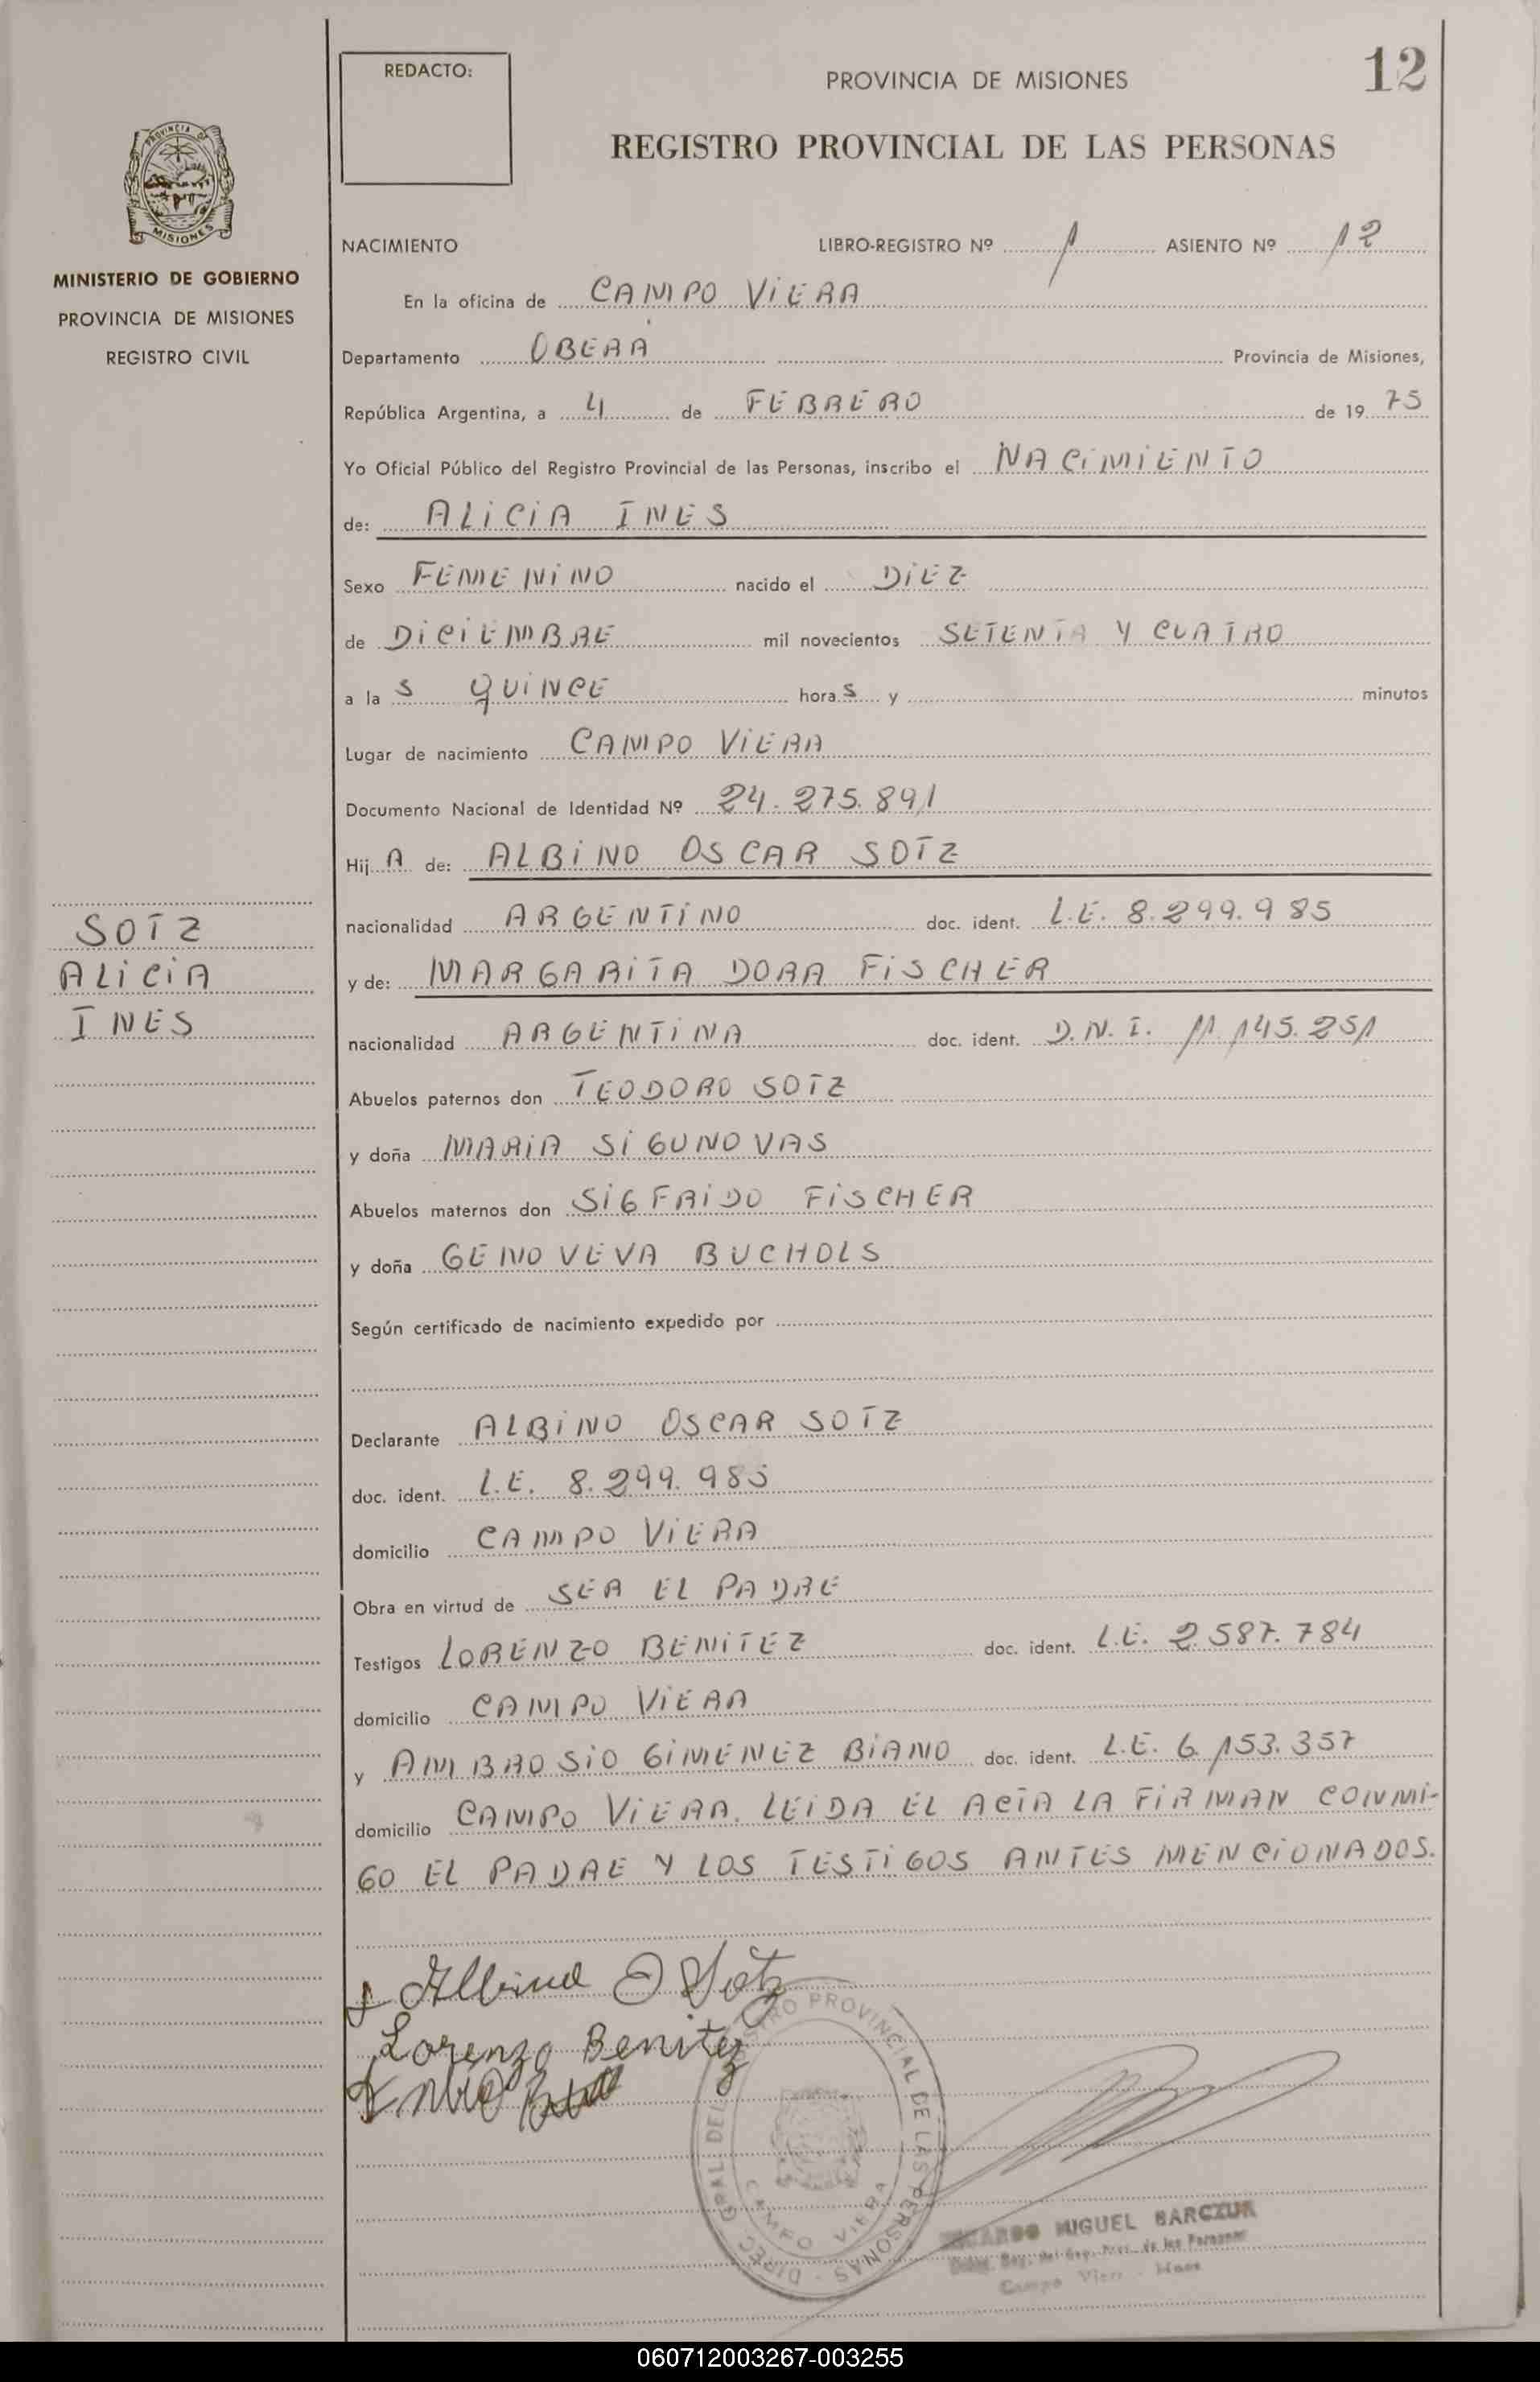 12
REDACTO:
PROVINCIA DE MISIONES
REGISTRO PROVINCIAL DE LAS PERSONAS
PROVINCIA DE
MISIONES
MINISTERIO DE GOBIERNO
PROVINCIA DE MISIONES
REGISTRO CIVIL
NACIMIENTO LIBRO-REGISTRO Nº 1 ASIENTO Nº 12
En la oficina de CAMPO ViERA
Departamento OBERA Provincia de Misiones,
República Argentina, a 4 de FEBRERO de 19 75
Yo Oficial Público del Registro Provincial de las Personas, inscribo el NACiMiENTO
de: ALiCiA INES
Sexo FEMENiNO nacido el DiEZ
de DiCiEMBRE mil novecientos SETENTA Y CUATRO
a la s QUiNCE hora s y minutos
Lugar de nacimiento CAMPO ViERA
Documento Nacional de Identidad Nº 24.275.891
Hij A de: ALBiNO OSCAR SOTZ
nacionalidad ARGENTiNO doc. ident. L.E. 8.299.985
y de: MARGARiTA DORA FiSCHER
nacionalidad ARGENTiNA doc. ident. D.N.I. 11.145.251
SOTZ
ALiCiA
INES
Abuelos paternos don TEODORO SOTZ
y doña MARiA SiGUNOVAS
Abuelos maternos don SiGFRiDO FiSCHER
y doña GENOVEVA BUCHOLS
Según certificado de nacimiento expedido por
Declarante ALBiNO OSCAR SOTZ
doc. ident. L.E. 8.299.985
domicilio CAMPO ViERA
Obra en virtud de SER EL PADRE
Testigos LORENZO BENiTEZ doc. ident. L.E. 2.587.784
domicilio CAMPO ViERA
y AMBROSiO GiMENEZ BiANO doc. ident. L.E. 6.153.357
domicilio CAMPO ViERA. LEiDA EL ACTA LA FiRMAN CONMi-
GO EL PADRE Y LOS TESTiGOS ANTES MENCiONADOS.
Albino O Sotz
Lorenzo Benitez
DIREC GRAL DEL REGISTRO PROVINCIAL DE LAS PERSONAS
CAMPO VIERA
MIGUEL BARCZUK
Campo Viera
060712003267-003255